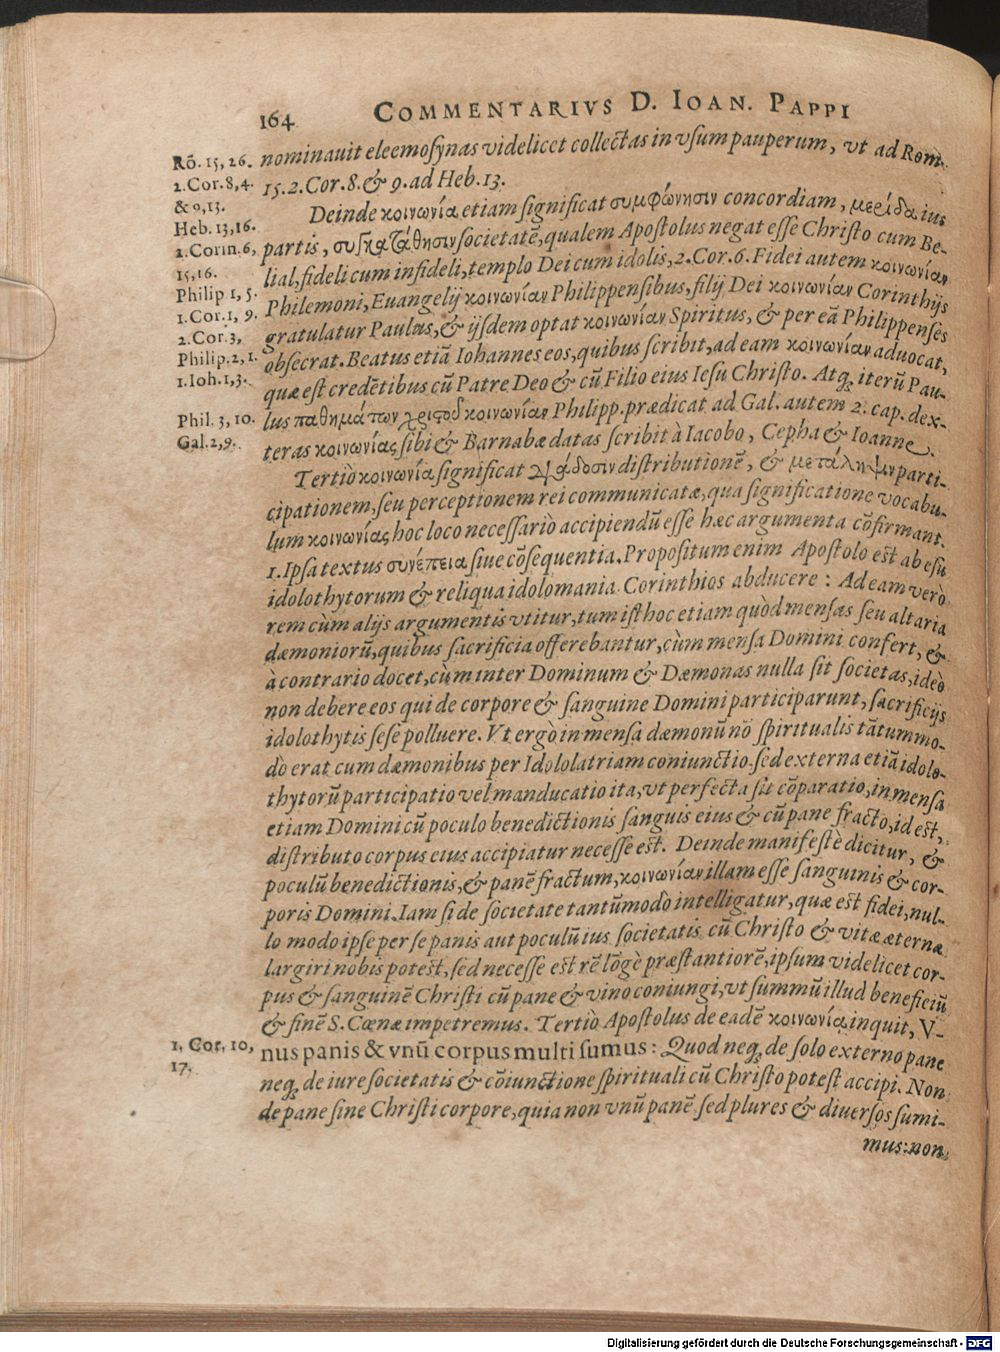 164 COMMENTARIVS D. IOAN. PAPPI
Rō. 15, 26. nominauit eleemosynas videlicet collectas in vsum pauperum, vt ad Rom.
2. Cor. 8, 4. 15. 2. Cor. 8. & 9. ad Heb. 13.
& 9, 13. Deinde κοινωνία etiam significat συμφώνησιν concordiam, μερίδα ius
Heb. 13, 16. partis, συγκατάθησιν societatē, qualem Apostolus negat esse Christo cum Be-
2. Corin. 6, lial, fideli cum infideli, templo Dei cum idolis, 2. Cor. 6. Fidei autem κοινωνίαν
15, 16. Philemoni, Euangelij κοινωνίαν Philippensibus, filij Dei κοινωνίαν Corinthijs
Philip. 1, 5. gratulatur Paulus, & ijsdem optat κοινωνίαν Spiritus, & per eā Philippenses
1. Cor. 1, 9. obsecrat. Beatus etiā Iohannes eos, quibus scribit, ad eam κοινωνίαν aduocat,
2. Cor. 3, quæ est credētibus cū Patre Deo & cū Filio eius Iesu Christo. Atq; iterū Pau-
Philip. 2, 1.
1. Ioh. 1, 3.
Phil. 3, 10. lus παθημάτων χριστοῦ κοινωνίαν Philipp. prædicat ad Gal. autem 2. cap. dex-
Gal. 2, 9. teras κοινωνίας sibi & Barnabæ datas scribit à Iacobo, Cepha & Ioanne.
Tertiò κοινωνία significat διάδοσιν distributionē, & μετάληψιν parti-
cipationem, seu perceptionem rei communicatæ, qua significatione vocabu-
lum κοινωνίας hoc loco necessariò accipiendū esse hæc argumenta cōfirmant.
1. Ipsa textus συνέπεια siue cōsequentia. Propositum enim Apostolo est ab esu
idolothytorum & reliqua idolomania Corinthios abducere: Ad eam verò
rem cùm alijs argumentis vtitur, tum isthoc etiam quòd mensas seu altaria
dæmoniorū, quibus sacrificia offerebantur, cùm mensa Domini confert, &
à contrario docet, cùm inter Dominum & Dæmonas nulla sit societas, ideò
non debere eos qui de corpore & sanguine Domini participarunt, sacrificijs
idolothytis sese polluere. Vt ergò in mensa dæmonū nō spiritualis tātummo-
dò erat cum dæmonibus per Idololatriam coniunctio, sed externa etiā idolo-
thytorū participatio vel manducatio ita, vt perfecta sit cōparatio, in mensa
etiam Domini cū poculo benedictionis sanguis eius & cū pane fracto, id est,
distributo corpus eius accipiatur necesse est. Deinde manifestè dicitur, &
poculū benedictionis, & panē fractum, κοινωνίαν illam esse sanguinis & cor-
poris Domini. Iam si de societate tantūmodò intelligatur, quæ est fidei, nul-
lo modo ipse per se panis aut poculū ius societatis cū Christo & vitæ æternæ
largiri nobis potest, sed necesse est rē lōgè præstantiorē, ipsum videlicet cor-
pus & sanguinē Christi cū pane & vino coniungi, vt summū illud beneficiū
& finē S. Cœnæ impetremus. Tertiò Apostolus de eadē κοινωνίᾳ inquit, V-
1. Cor. 10, nus panis & vnū corpus multi sumus: Quod neq; de solo externo pane
17. neq; de iure societatis & cōiunctione spirituali cū Christo potest accipi. Non
de pane sine Christi corpore, quia non vnū panē sed plures & diuersos sumi-
mus: non
Digitalisierung gefördert durch die Deutsche Forschungsgemeinschaft - DFG